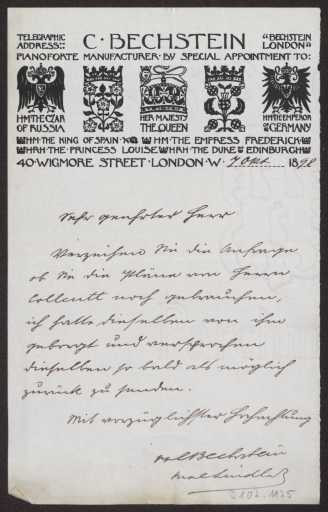 TELEGRAPHIC ADDRESS:: C. BECHSTEIN "BECHSTEIN LONDON"
PIANOFORTE MANUFACTURER · BY SPECIAL APPOINTMENT TO:
HIM THE CZAR OF RUSSIA
HER MAJESTY THE QUEEN
HIM THE EMPEROR OF GERMANY
HM · THE KING OF SPAIN · HM · THE EMPRESS FREDERICK ·
HRH · THE · PRINCESS LOUISE HRH · THE DUKE OF EDINBURGH
40 · WIGMORE STREET · LONDON · W · 7 Okt. 1898
Sehr geehrter Herr
Verzeihen Sie die Anfrage
ob Sie die Pläne von Herrn
Collcutt noch gebrauchen,
ich hatte dieselben von ihm
geborgt und versprochen
dieselben so bald als möglich
zurück zu senden.
Mit vorzüglichster Hochachtung
Bechstein
Max Lindlar